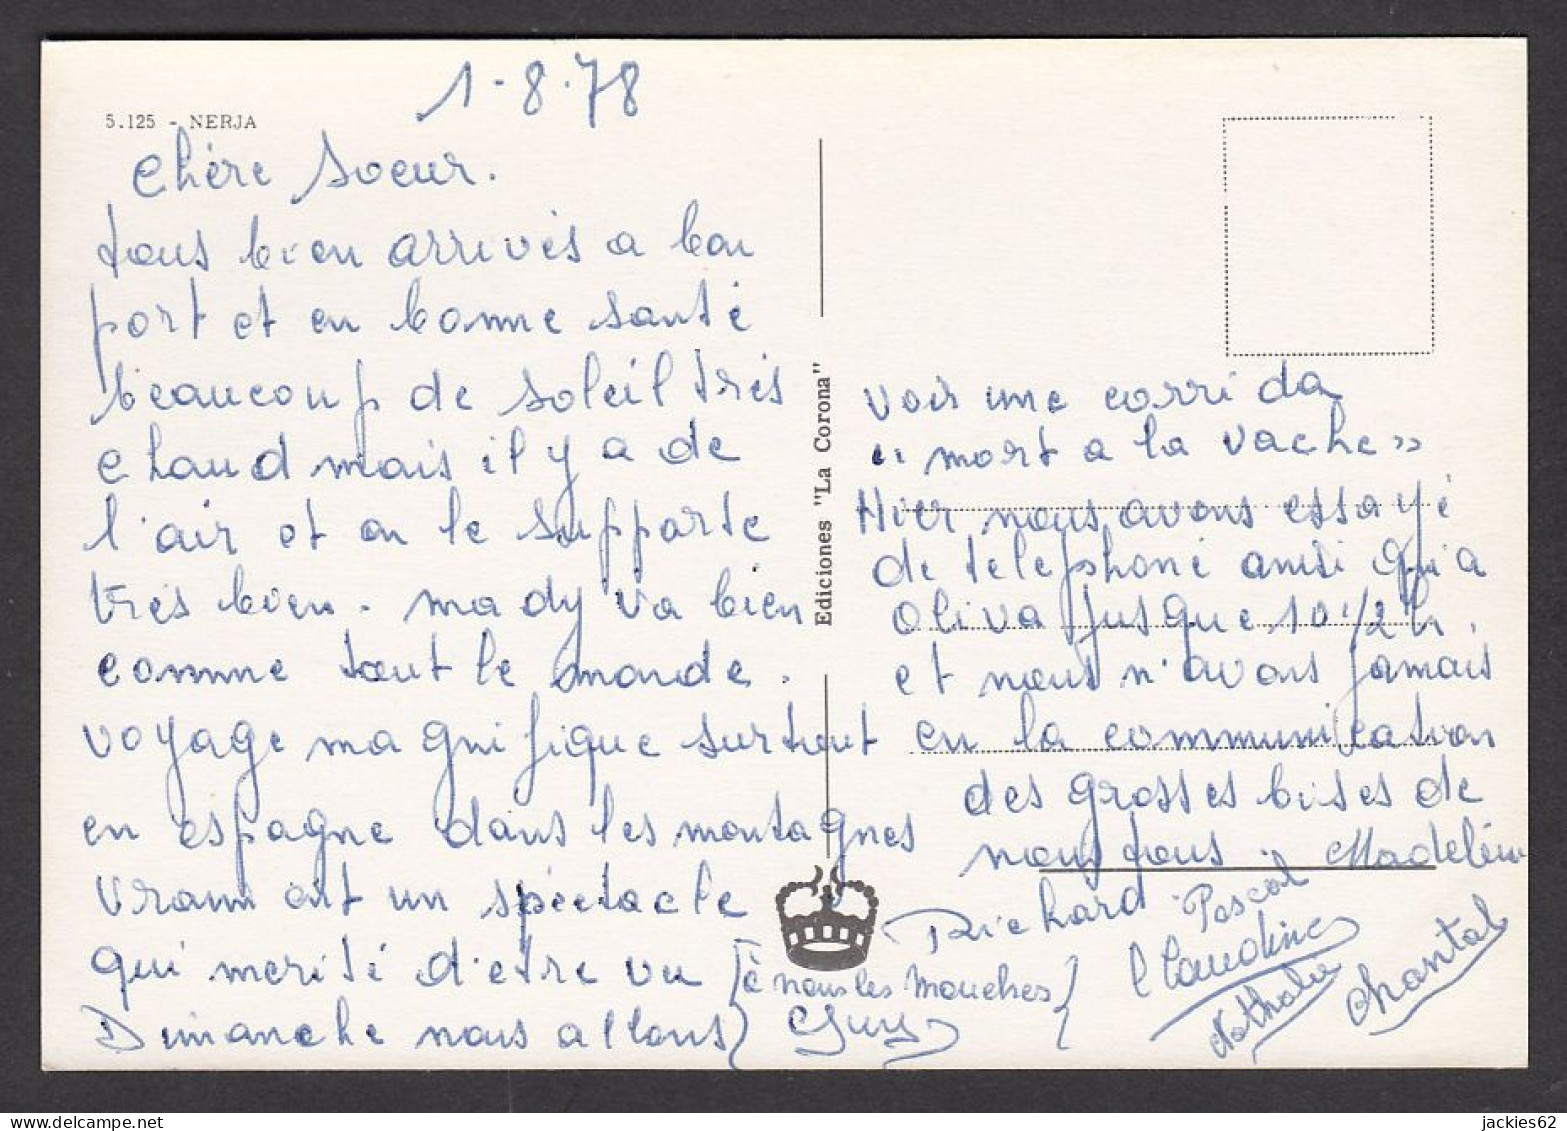 1-8.78
5.125 - NERJA
Chère Soeur.
tous bien arrivés a bon
port et en bonne santé
beaucoup de soleil très
chaud mais il y a de
l'air et on le supporte
très bien. mady va bien
comme tout le monde.
voyage magnifique surtout
en espagne dans les montagnes
vraiment un spectacle
qui mérité d'etre vu
Dimanche nous allons
Ediciones "La Corona"
voir une corrida
"mort a la vache"
Hier nous avons essayé
de téléphoné anité qui a
Oliva jusque 10 1/2 h.
et nous n'avons jamais
eu la communication
des grosses bises de
nous tous. Madeleine
Richard Pascal
Claudine
Nathalie Chantal
à nous les mouches
Guy
delcampe.net
jackies62